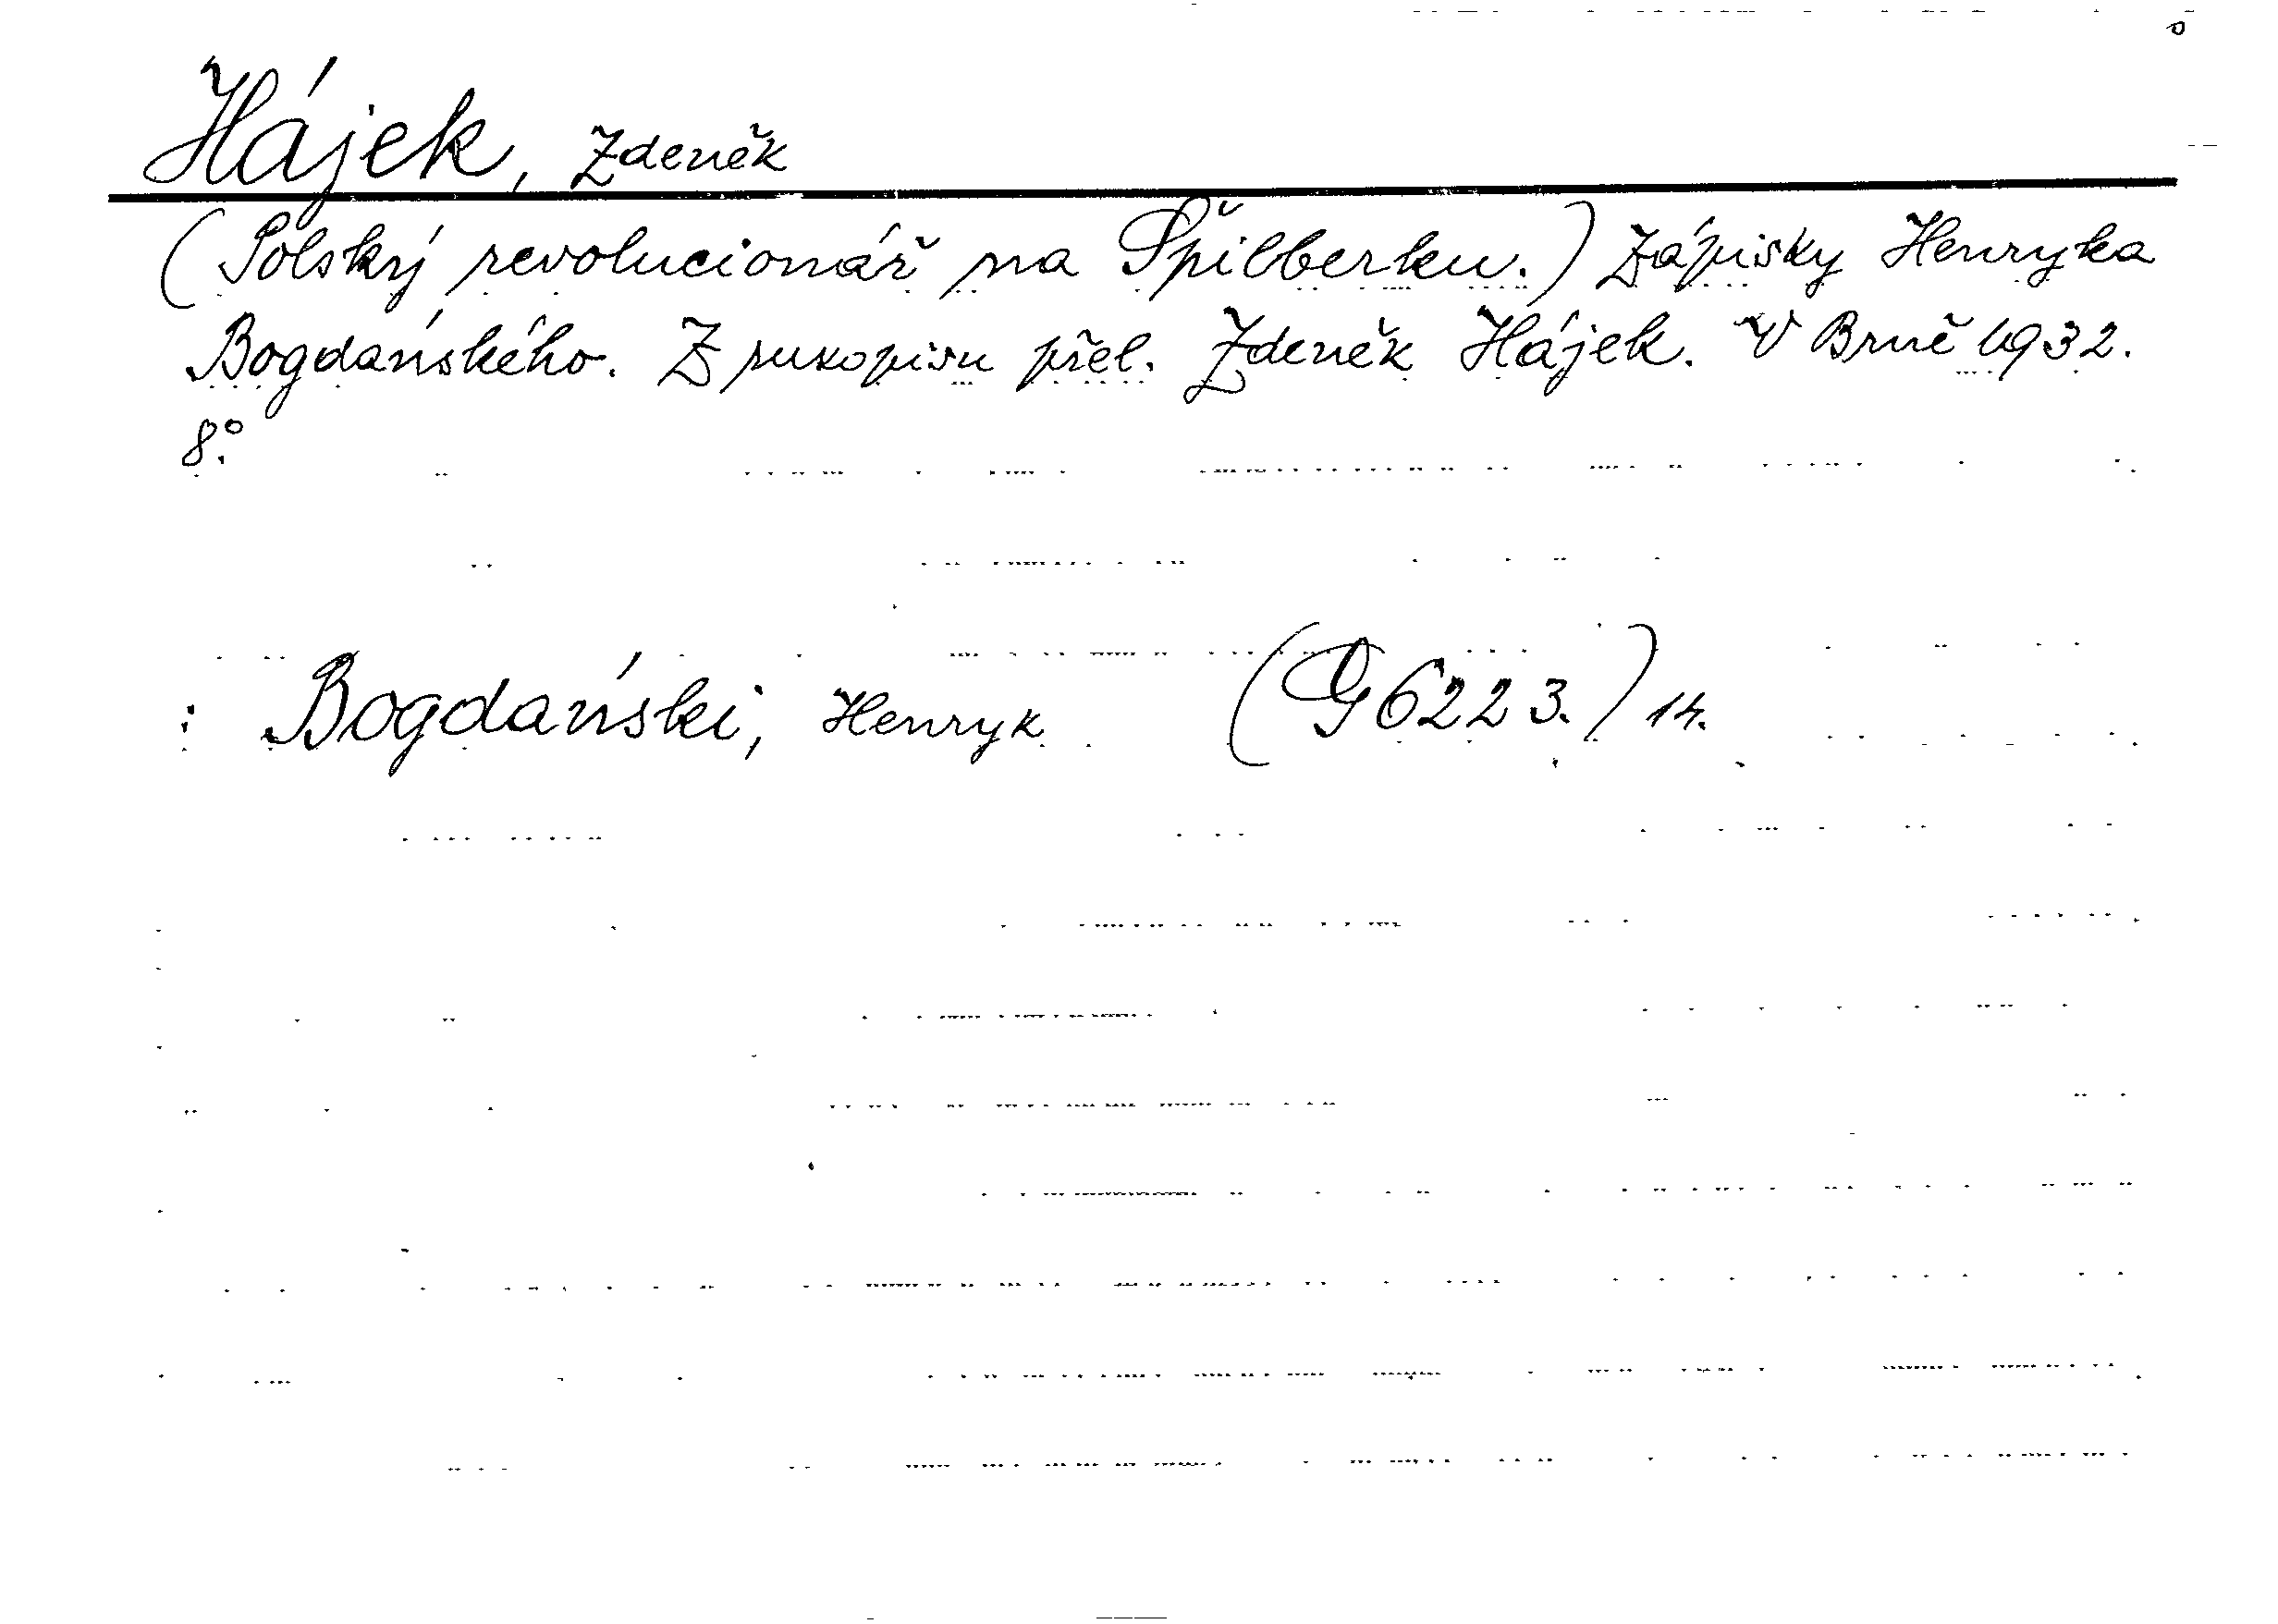 Hájek, Zdeněk
(Polský revolucionář na Špilberku.) Zápisky Henryka
Bogdańského. Z rukopisu přel. Zdeněk Hájek. V Brně 1932.
8°.
: Bogdański, Henryk (G 6223.) 14.